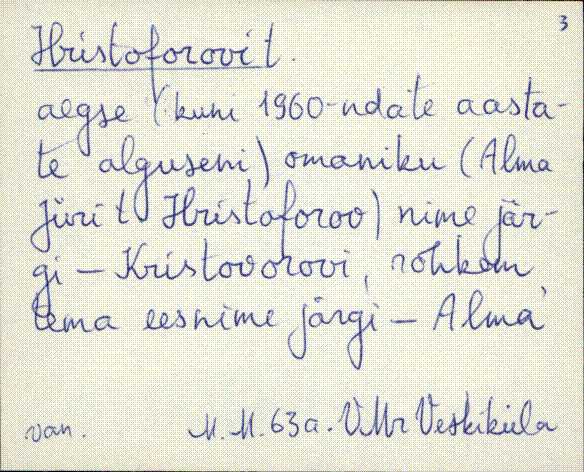 3
Hristoforovi t.
aegse (kuni 1960-ndate aasta-
te alguseni) omaniku (Alma
Jüri t. Hristoforov) nime jär-
gi – Kristovorovi, rohkem
tema eesnime järgi – Alma
van. M. M. 63a. VMr Veskiküla